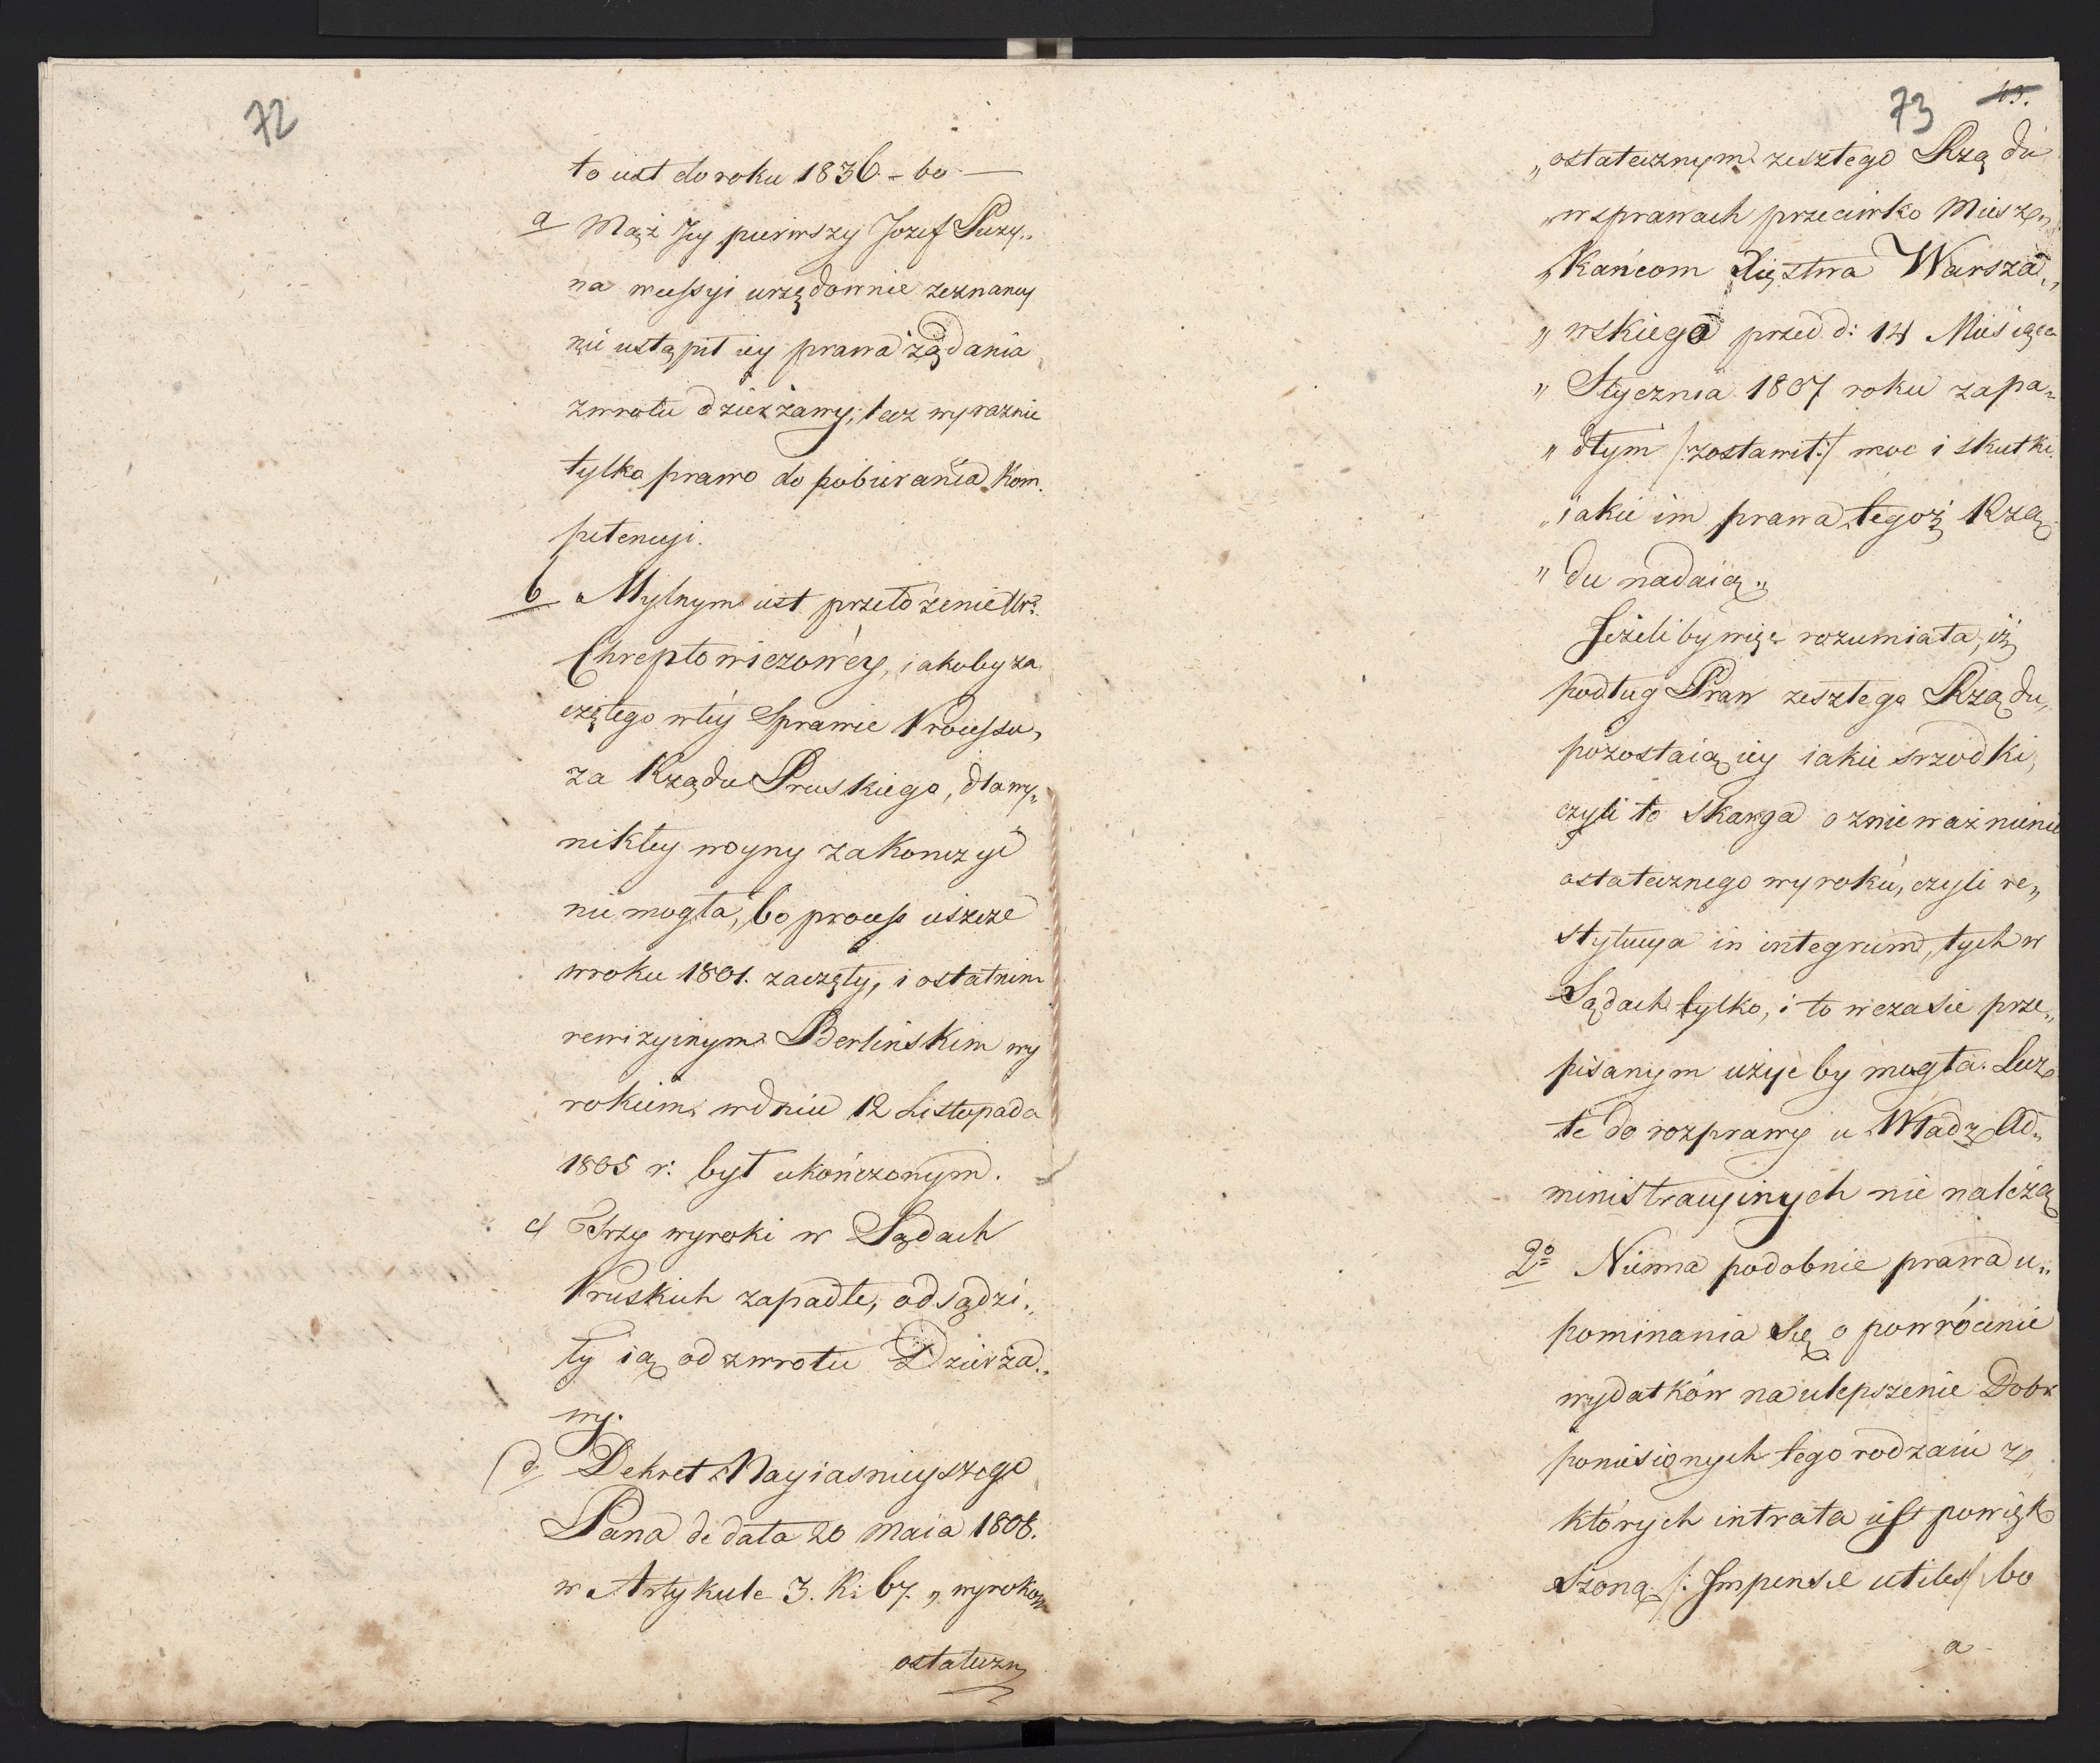 72
to iest do roku 1836 - bo —
a Mąż Jey pierwszy Jozef Puzy„
na w cessyi urzędownie zeznaney
nie ustąpił iey prawa żądania
zwrotu dzierżawy, lecz wyraznie
tylko prawo do pobierania Kom„
petencyi.
b Mylnym iest przełożenie Ur:
Chreptowiczowéy, iakoby za„
czętego w téy Sprawie Processu,
za Rządu Pruskiego, dla wy„
nikłey woyny zakończyć
nie mogła, bo process ieszcze
w roku 1801. zaczęty, i ostatnim
rewizyinym Berlinskim wy
rokiem w dniu 12 Listopada
1805 r: był ukończonym.
c/ Trzy wyroki w Sądach
Pruskich zapadłe, odsądzi„
ły ią od zwrotu Dzierża„
wy.
d/ Dekret Nayiasnieyszego
Pana de data 20 Maia 1808.
w Artykule 3. „ wyrokom
ostateczn
73 43.
„ ostatecznym zeszłego Rządu
„ w sprawach przeciwko Miesz„
„ Kańcom Xięstwa Warsza„
„ wskiego przed d: 14 Miesiąca
„ Stycznia 1807 roku zapa„
„ dłym /:zostawił:/ moc i skutki
„ iakie im prawa tegoż Rzą„
„ du nadaią„
Jeżeliby więc rozumiała, iż
podług Praw zeszłego Rządu,
pozostaią iey iakie srzodki,
czyli to skarga o znieważnienie
ostatecznego wyroku, czyli re„
stytucya in integrum, tych w
Sądach tylko, i to w czasie prze„
pisanym użyć by mogła. Lecz
te do rozprawy u Władz Ad„
ministracyinych nie należą
2o Niema podobnie prawa u„
pominania się o powrócenie
wydatków na ulepszenie Dobr
poniesionych tego rodzaiu z
których intrata iest powięk
szoną /: Impensae utiles/ bo
a